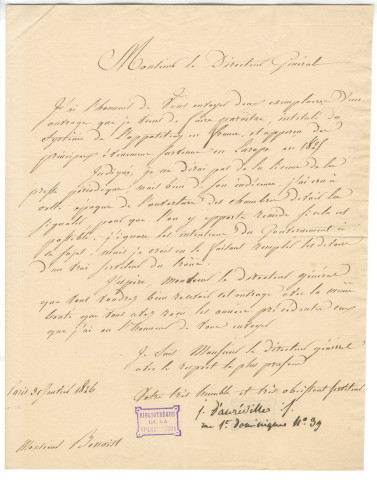 Monsieur le Directeur Général
J'ai l'honneur de Vous envoyer deux exemplaires d'un
ouvrage que je viens de faire paraître, intitulé du
Système de l'opposition en france, et apperçu des
principaux évènemens survenus en Europe en 1825
Indigné, je ne dirai pas de la licence de la
presse périodique mais bien de son indécence, j'ai crû à
cette époque de l'ouverture des chambres devoir la
signaler pour que l'on y apporte remède si cela est
possible, j'ignore les intentions du Gouvernement à
ce sujet; mais je crois en le faisant remplir les devoirs
d'un vrai serviteur du trône.
J'espère, Monsieur le directeur général
que vous voudrez bien recevoir cet ouvrage avec la même
bonté que vous avez reçu les années précédentes ceux
que j'ai eu l'honneur de vous envoyer
Je suis Monsieur le directeur général
avec le respect le plus profond
Paris 30 Janvier 1826
Votre très humble et très obéissant serviteur
J. d'auréville
rue St. dominique N° 39
BIBLIOTHÈQUE
DE LA
Monsieur Benoist